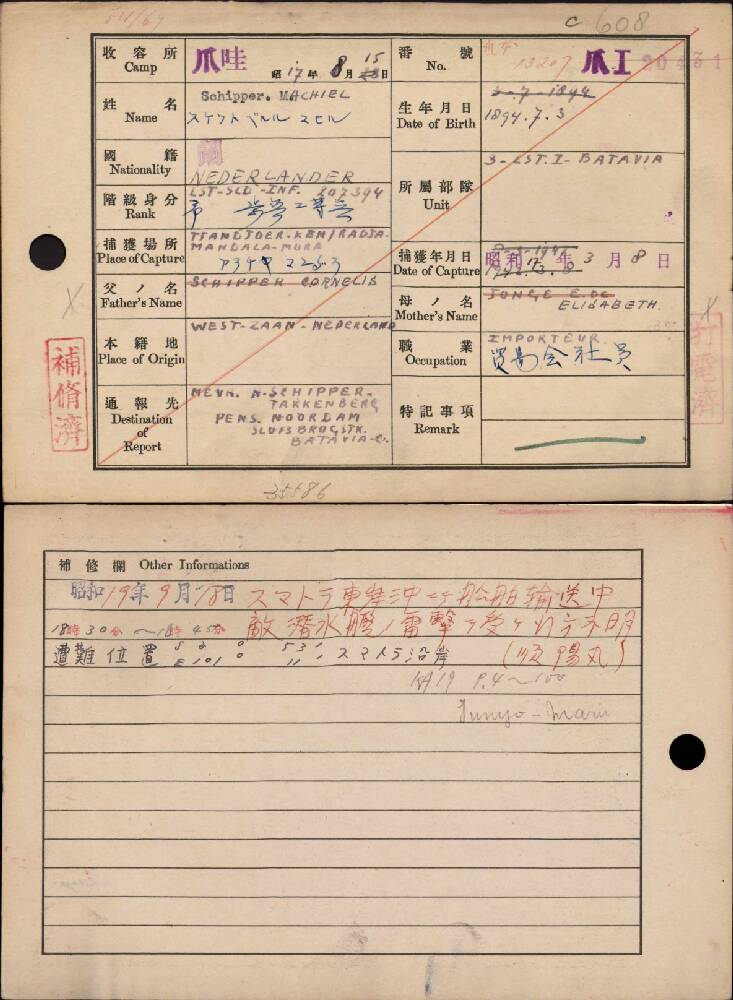 c 608
收容所 Camp
爪哇
昭17年8月15日
番號 No.
13207
爪I 20431
姓名 Name
Schipper. MACHIEL
生年月日 Date of Birth
3-7-1894
1894.7.3
國籍 Nationality
NEDERLANDER
階級身分 Rank
LST-SLD-INF. 207394
所屬部隊 Unit
3-LST.I-BATAVIA
捕獲場所 Place of Capture
TJANDJOER-KEN/RADJA-
MANDALA-MURA
捕獲年月日 Date of Capture
昭和17年3月8日
父ノ名 Father's Name
SCHIPPER CORNELIS
母ノ名 Mother's Name
JONGE E. DE
ELISABETH.
本籍地 Place of Origin
WEST-ZAAN-NEDERLAND
職業 Occupation
IMPORTEUR.
貿易会社員
通報先 Destination of Report
MEVR. N-SCHIPPER-
TAKKENBERG
PENS. NOORDAM
SLUISBRUGSTR.
BATAVIA-C.
特記事項 Remark
補脩濟
35586
補修欄 Other Informations
昭和19年9月18日 スマトラ東岸沖ニテ船舶輸送中
18時30分〜18時45分 敵潜水艦ノ雷撃ヲ受ケ行方不明
遭難位置 S 2° 53′ E 101° 11′ スマトラ沿岸 (順陽丸)
P.4〜100
Junyo-Maru